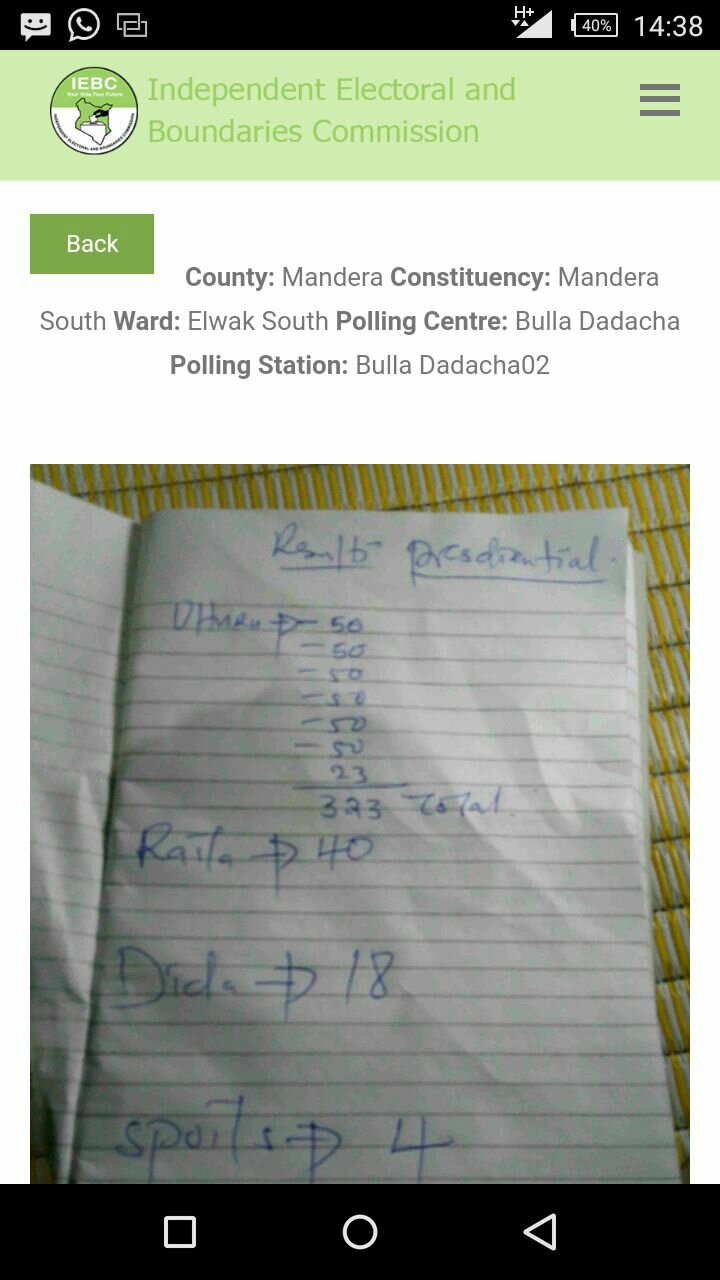 H+
40%
14:38
IEBC
Your Vote, Your Future
INDEPENDENT ELECTORAL AND BOUNDARIES COMMISSION
Independent Electoral and
Boundaries Commission
Back
County: Mandera Constituency: Mandera
South Ward: Elwak South Polling Centre: Bulla Dadacha
Polling Station: Bulla Dadacha02
Results presdiential.
Uhuru ⇒ - 50
- 50
- 50
- 50
- 50
- 50
23
323 Total.
Raila ⇒ 40
Dida ⇒ 18
spoils ⇒ 4